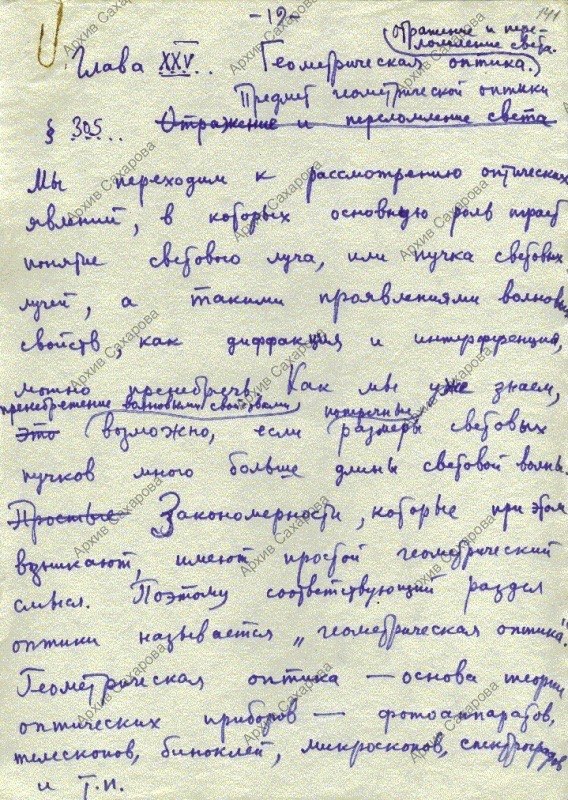 -19-
141
Глава XXV.. Геометрическая оптика.
(Отражение и пере-
ломление света.)
Предмет геометрической оптики
§ 305... Отражение и переломление света
Мы переходим к рассмотрению оптических
явлений, в которых основную роль играет
понятие светового луча, или пучка световых
лучей, а такими проявлениями волновых
свойств, как диффракция и интерференция,
можно пренебречь. Как мы уже знаем,
пренебрежение волновыми свойствами поперечные
это возможно, если размеры световых
пучков много больше длины световой волны.
Простые Закономерности, которые при этом
возникают, имеют простой геометрический
смысл. Поэтому соответствующий раздел
оптики называется „геометрическая оптика".
Геометрическая оптика — основа теории
оптических приборов — фотоаппаратов,
телескопов, биноклей, микроскопов, спектрографов
и т.п.
Архив Сахарова